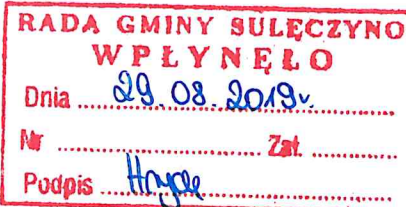 RADA GMINY SULĘCZYNO
WPŁYNĘŁO
Dnia ........ 29.08.2019r. ........
Nr ........................ Zał. ................
Podpis ........................